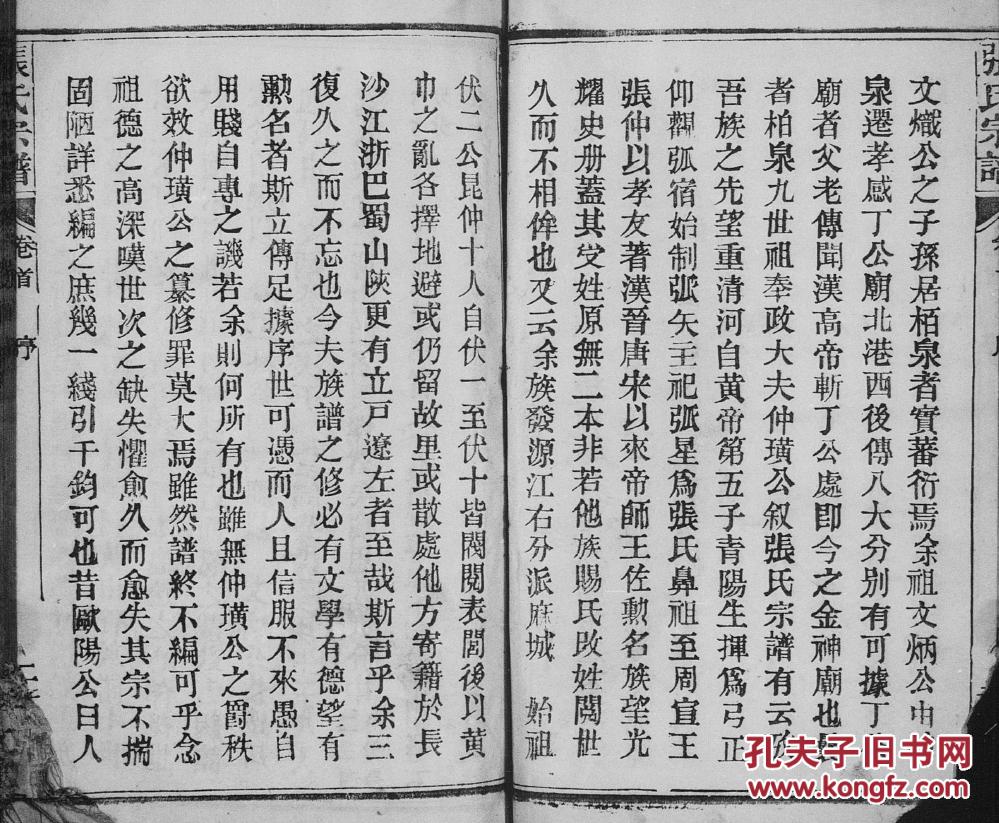 張氏宗譜
文熾公之子孫居栢泉者實蕃衍焉余祖文炳公由
泉遷孝感丁公廟北港西後傳八大分別有可據丁
廟者父老傳聞漢高帝斬丁公處卽今之金神廟也
者柏泉九世祖奉政大夫仲璜公叙張氏宗譜有云
吾族之先望重清河自黃帝第五子青陽生揮爲弓正
仰觀弧宿始制弧矢主祀弧星爲張氏鼻祖至周宣王
張仲以孝友著漢晉唐宋以來帝師王佐勲名族望光
耀史册蓋其受姓原無二本非若他族賜氏改姓閲世
久而不相侔也又云余族發源江右分派麻城 始祖
伏二公昆仲十人自伏一至伏十皆閥閲表閭後以黃
巾之亂各擇地避或仍留故里或散處他方寄籍於長
沙江浙巴蜀山陝更有立戸遼左者至哉斯言乎余三
復久之而不忘也今夫族譜之修必有文學有德望有
勲名者斯立傳足據序世可憑而人且信服不來愚自
用賤自專之譏若余則何所有也雖無仲璜公之爵秩
欲效仲璜公之纂修罪莫大焉雖然譜終不編可乎念
祖德之高深嘆世次之缺失懼愈久而愈失其宗不揣
固陋詳悉編之庶幾一綫引千鈞可也昔歐陽公曰人
張氏宗譜
卷首
序
孔夫子旧书网
www.kongfz.com